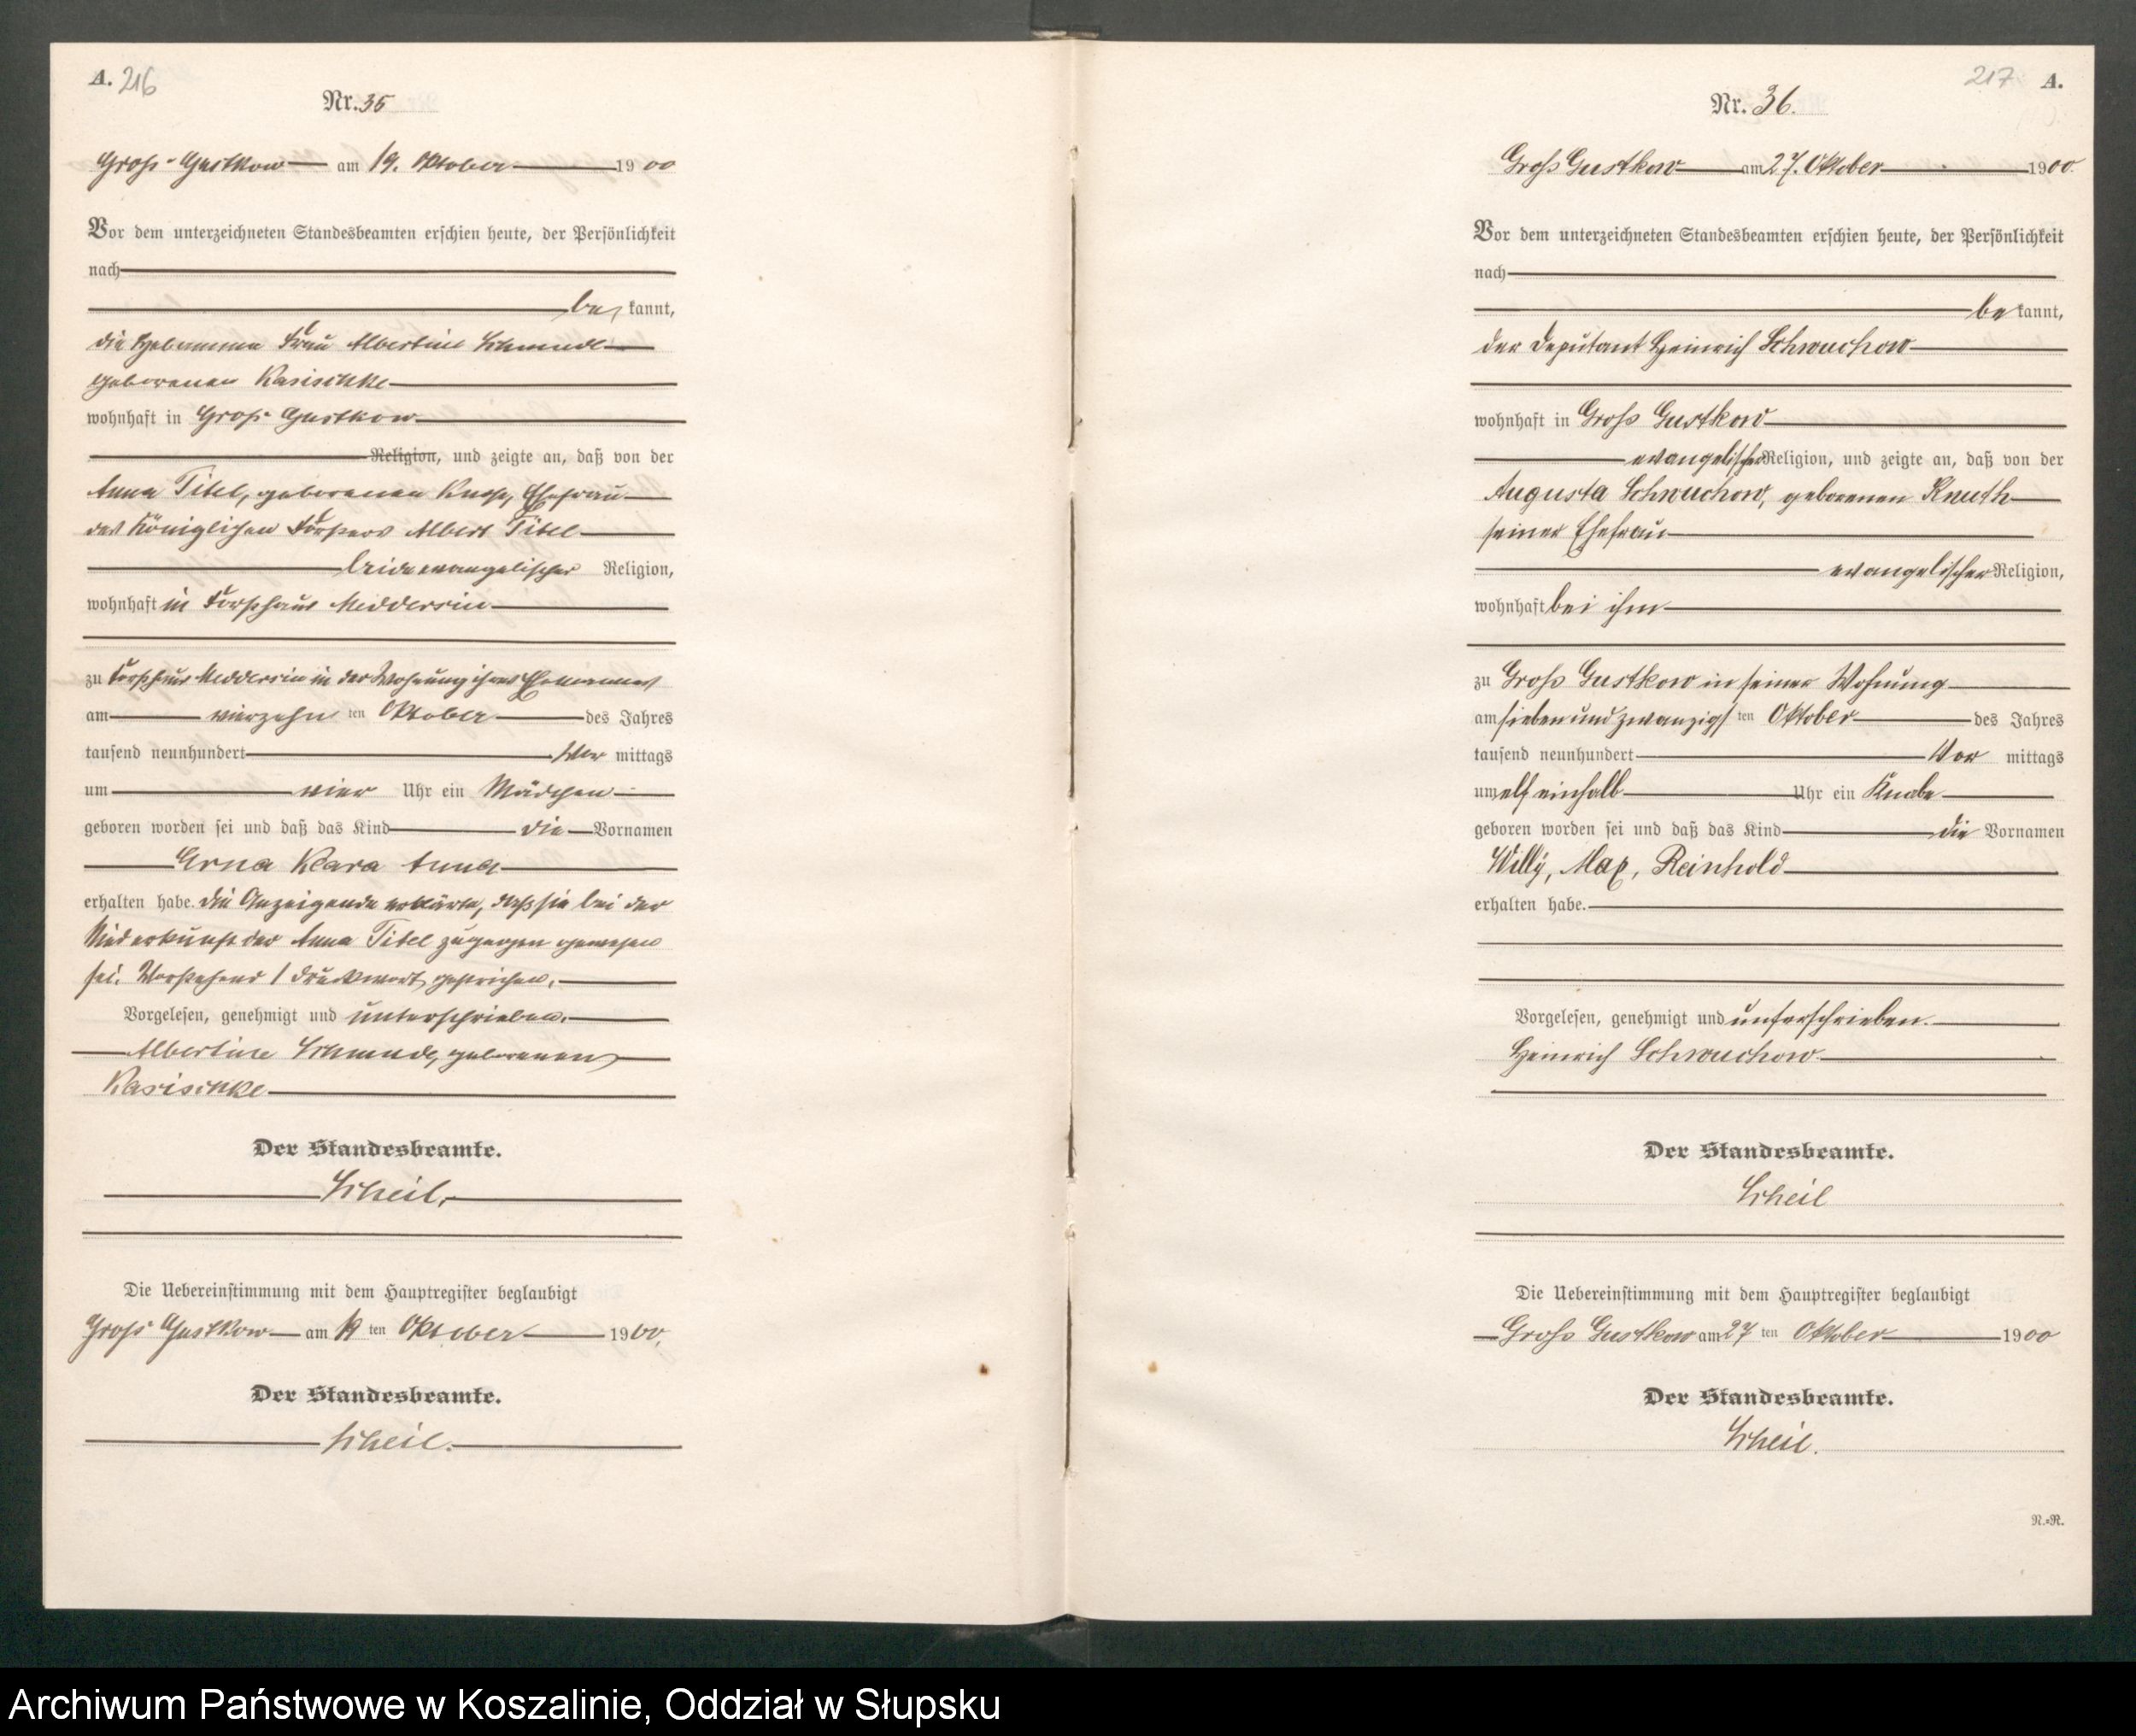 A. 216
Nr. 35
Groß-Gustkow am 19. Oktober 1900
Vor dem unterzeichneten Standesbeamten erschien heute, der Persönlichkeit
nach
be kannt,
die Hebamme Frau Albertine Schmude
geborenen Kasischke
wohnhaft in Groß-Gustkow
Religion, und zeigte an, daß von der
Anna Titel, geborenen Ehefrau
des Königlichen Försters Albert Titel
beide evangelischer Religion,
wohnhaft in Forsthaus Meddersin
zu Forsthaus Meddersin in der Wohnung ihres Ehemannes
am vierzehn ten Oktober des Jahres
tausend neunhundert Vor mittags
um vier Uhr ein Mädchen
geboren worden sei und daß das Kind die Vornamen
Erna Klara Anna
erhalten habe. Die Anzeigende erklärte, daß sie bei der
Niederkunft der Anna Titel zugegen gewesen
sei. Vorstehend 1 Druckwort gestrichen.
Vorgelesen, genehmigt und unterschrieben.
Albertine Schmude, geborenen
Kasischke
Der Standesbeamte.
Scheil.
Die Uebereinstimmung mit dem Hauptregister beglaubigt
Groß-Gustkow am 19 ten Oktober 1900.
Der Standesbeamte.
Scheil.
217 A.
Nr. 36.
Groß Gustkow am 27. Oktober 1900.
Vor dem unterzeichneten Standesbeamten erschien heute, der Persönlichkeit
nach
be kannt,
der Deputant Heinrich Schwuchow
wohnhaft in Groß Gustkow
evangelischer Religion, und zeigte an, daß von der
Augusta Schwuchow, geborenen Knuth
seiner Ehefrau
evangelischer Religion,
wohnhaft bei ihm
zu Groß Gustkow in seiner Wohnung
am siebenundzwanzigs ten Oktober des Jahres
tausend neunhundert Vor mittags
um elf einhalb Uhr ein Knabe
geboren worden sei und daß das Kind die Vornamen
Willy, Max, Reinhold
erhalten habe.
Vorgelesen, genehmigt und unterschrieben.
Heinrich Schwuchow
Der Standesbeamte.
Scheil
Die Uebereinstimmung mit dem Hauptregister beglaubigt
Groß Gustkow am 27 ten Oktober 1900
Der Standesbeamte.
Scheil.
N.=R.
Archiwum Państwowe w Koszalinie, Oddział w Słupsku